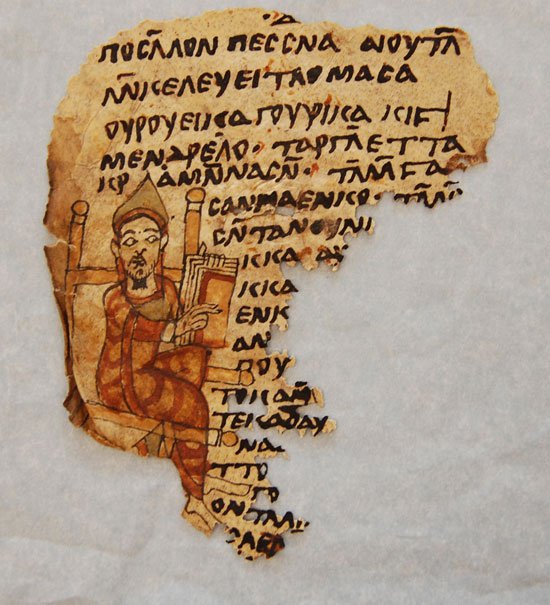 ⲡⲟⲥⲗ̄ⲗⲟⲛ ⲡⲉⲥⲥⲛⲁ ⲁⲓⲟⲩⲧⲗ̄
ⲗ̄ⲛⲓⲕⲉⲗⲉⲩⲉⲓⲧⲗⲟ ⲙⲁⲥⲁ
ⲟⲩⲣⲟⲩⲉⲓⲕⲁ ⲅⲟⲩⲣⲓⲕⲁ ⲕⲓⲉ
ⲙⲉⲛⲇⲣⲉⲗ̄ⲟ· ⲧⲁⲣⲡⲗ̄ⲉⲧⲧⲁ
ⲓⲕⲣⲁⲙⲛ̄ⲛⲁⲥⲛ̄· ⲧⲗ̄ⲗ̄ⲅⲁ
ⲥⲁⲛⲙⲁⲉⲛⲕⲟ· ⲧⲗ̄ⲗ̄
ⲥⲛ̄ⲧⲁⲛⲟⲩⲓⲛⲓ
ⲓⲕⲕⲁ ⲁⲩ
ⲓⲕⲕⲁ
ⲉⲛⲕ
ⲁⲛ
ⲡⲟⲩ
ⲧⲟⲕⲁⲙ̄
ⲧⲉⲕⲁⲇⲁⲩ
ⲛⲁ
ⲧⲧⲟ
ⲅⲟ
ⲟⲛⲧⲁⲗ
ⲗⲉⲗ